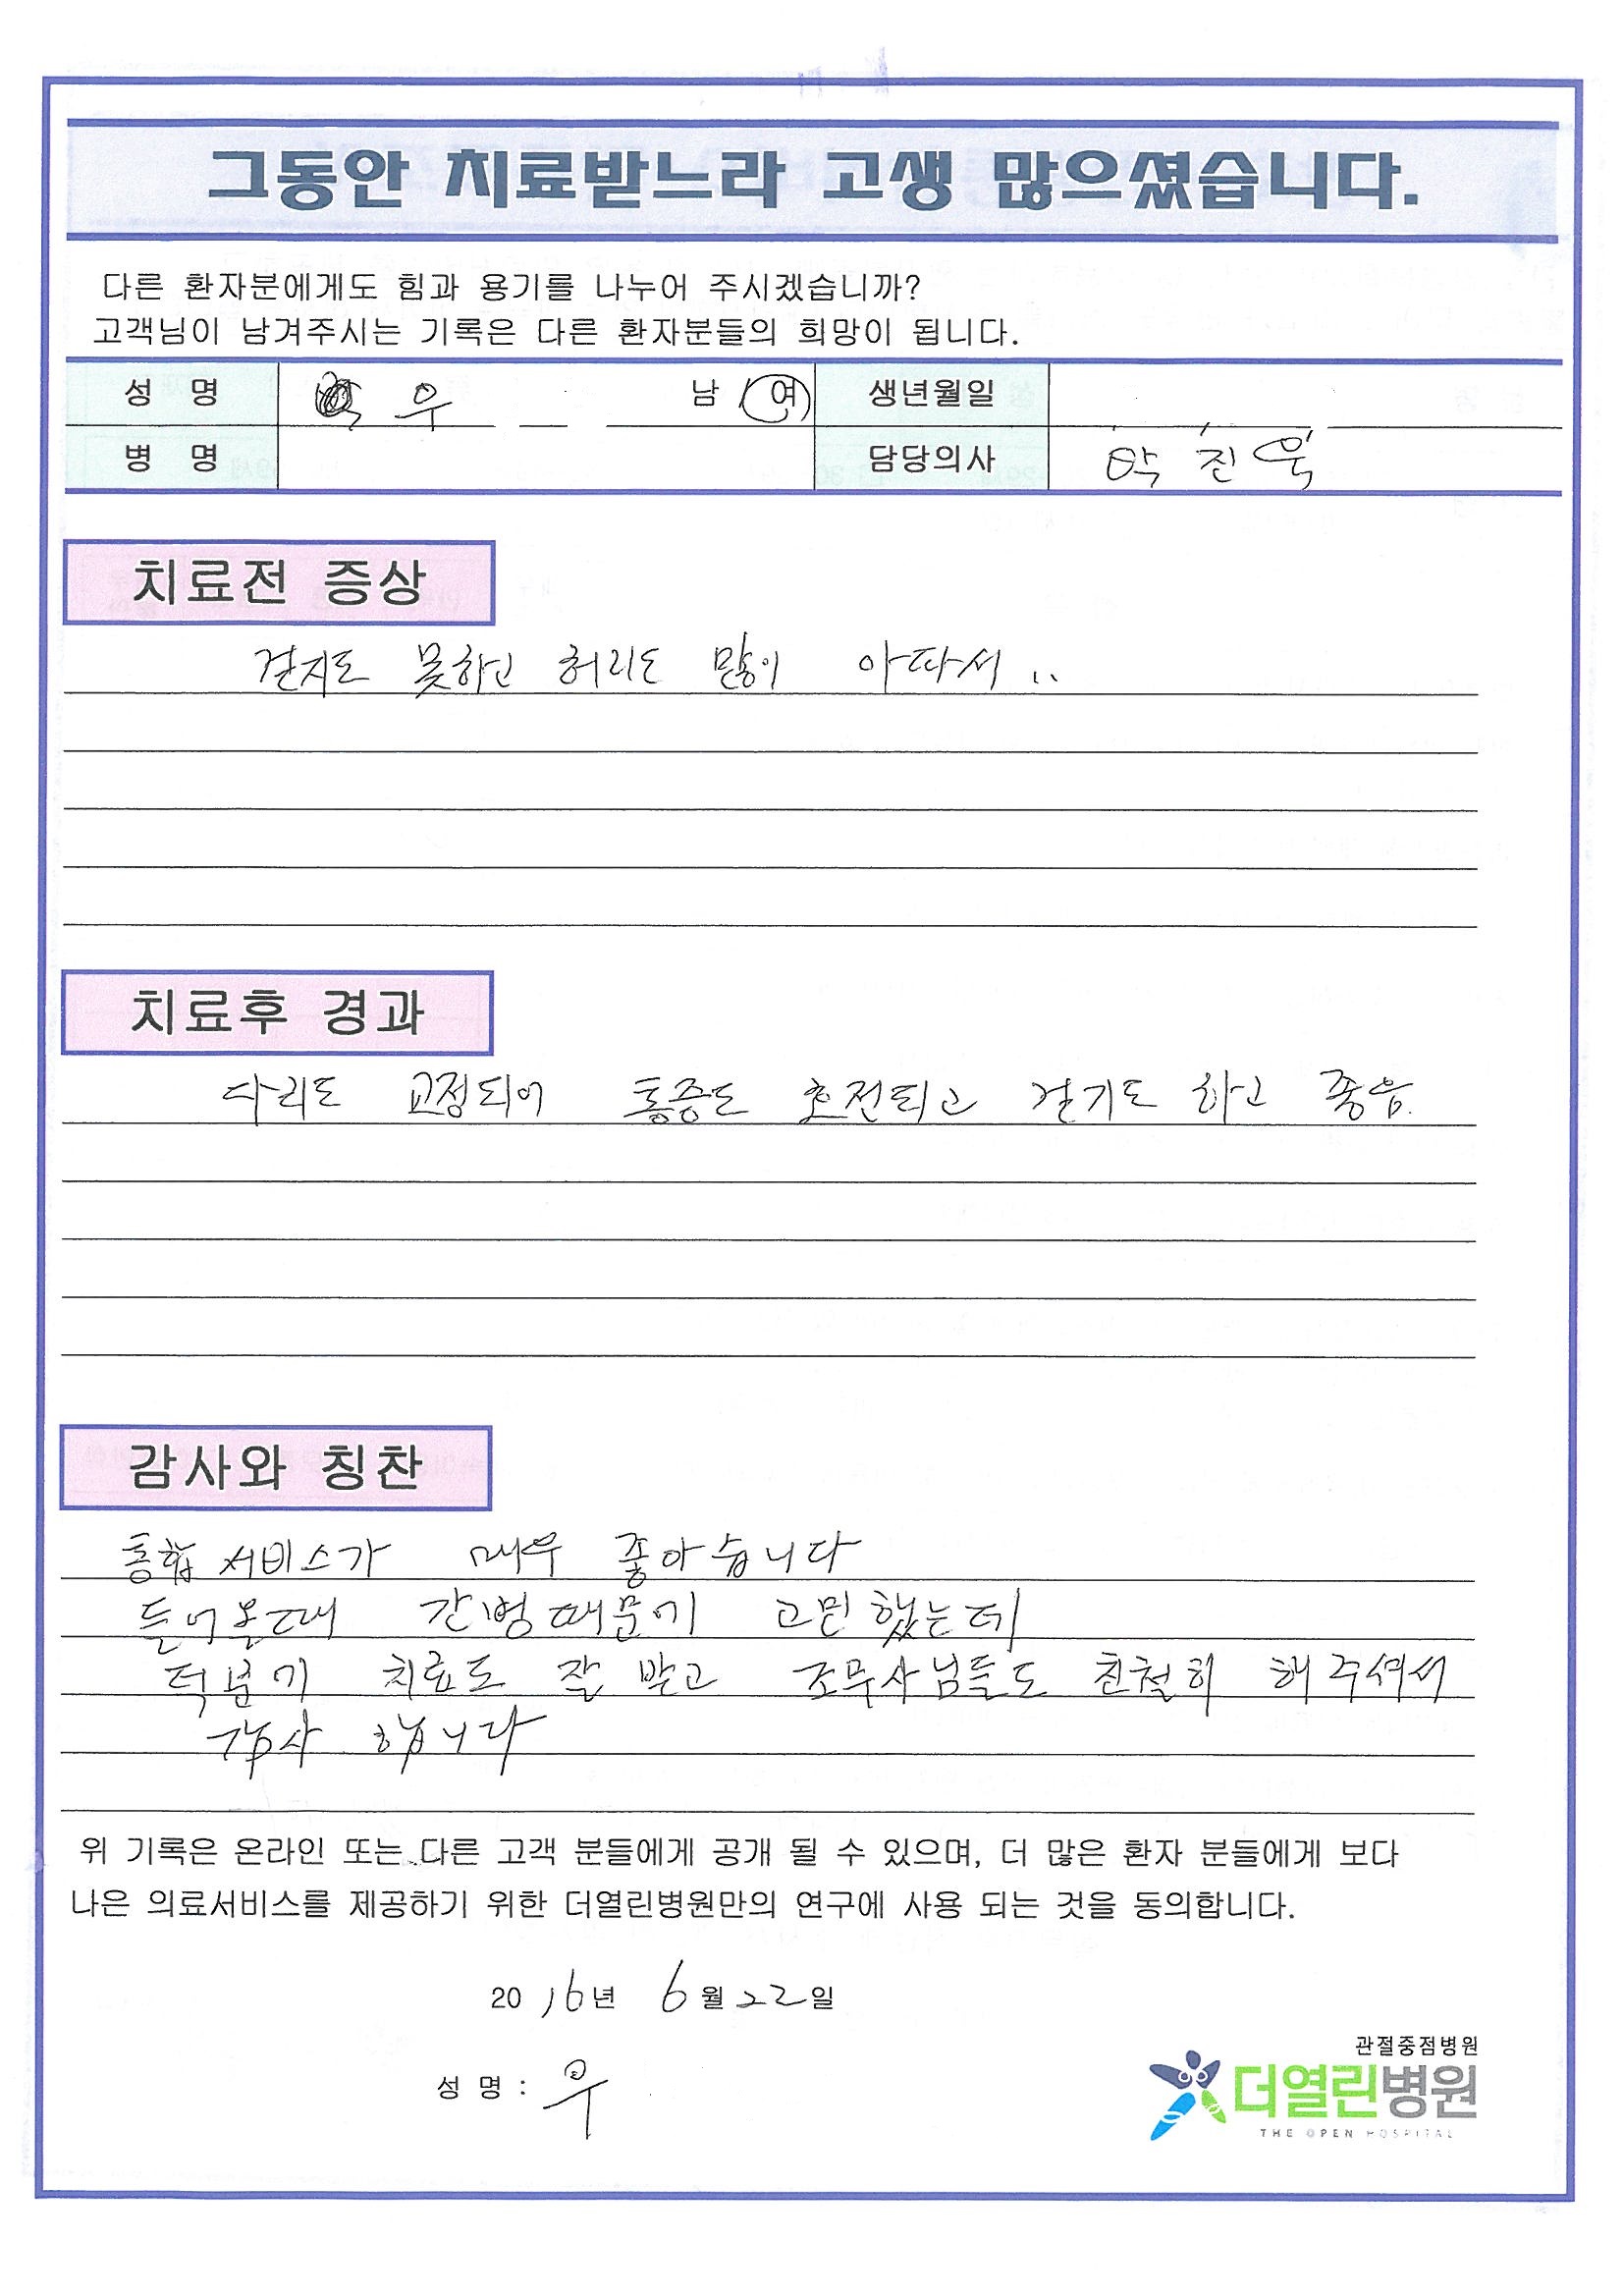 그동안 치료받느라 고생 많으셨습니다.
다른 환자분에게도 힘과 용기를 나누어 주시겠습니까?
고객님이 남겨주시는 기록은 다른 환자분들의 희망이 됩니다.
성 명 우 남 / 여 생년월일
병 명 담당의사 박진욱
치료전 증상
걷지도 못하고 허리도 많이 아파서..
치료후 경과
다리도 교정되어 통증도 호전되고 걷기도 하고 좋음.
감사와 칭찬
통합서비스가 매우 좋아습니다
들어올때 간병때문에 고민했는데
덕분기 치료도 잘 받고 조무사님들도 친철히 해주셔서
감사 합니다
위 기록은 온라인 또는 다른 고객 분들에게 공개 될 수 있으며, 더 많은 환자 분들에게 보다
나은 의료서비스를 제공하기 위한 더열린병원만의 연구에 사용 되는 것을 동의합니다.
2016년 6월 22일
성 명 : 우
관절중점병원
더열린병원
THE OPEN HOSPITAL